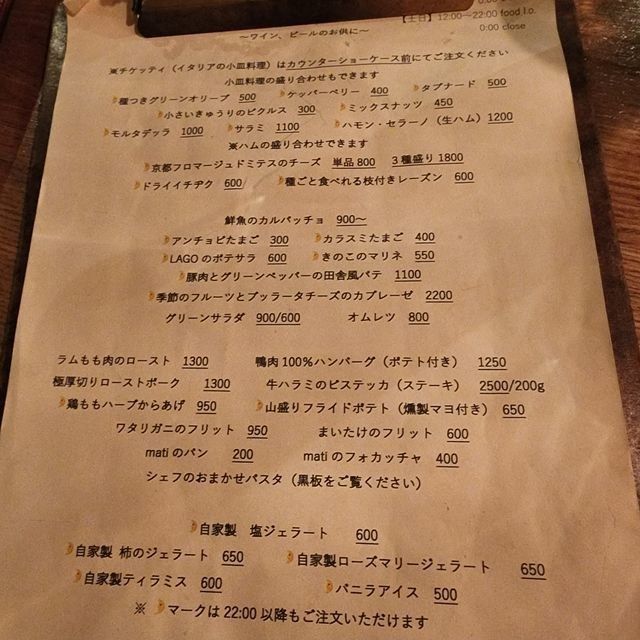 【土日】12:00〜22:00 food l.o.
0:00 close
〜ワイン、ビールのお供に〜
※チケッティ(イタリアの小皿料理)はカウンターショーケース前にてご注文ください
小皿料理の盛り合わせもできます
種つきグリーンオリーブ 500 ケッパーベリー 400 タプナード 500
小さいきゅうりのピクルス 300 ミックスナッツ 450
モルタデッラ 1000 サラミ 1100 ハモン・セラーノ(生ハム)1200
※ハムの盛り合わせできます
京都フロマージュドミテスのチーズ 単品800 3種盛り1800
ドライイチヂク 600 種ごと食べれる枝付きレーズン 600
鮮魚のカルパッチョ 900〜
アンチョビたまご 300 カラスミたまご 400
LAGOのポテサラ 600 きのこのマリネ 550
豚肉とグリーンペッパーの田舎風パテ 1100
季節のフルーツとブッラータチーズのカプレーゼ 2200
グリーンサラダ 900/600 オムレツ 800
ラムもも肉のロースト 1300 鴨肉100%ハンバーグ(ポテト付き) 1250
極厚切りローストポーク 1300 牛ハラミのビステッカ(ステーキ) 2500/200g
鶏ももハーブからあげ 950 山盛りフライドポテト(燻製マヨ付き) 650
ワタリガニのフリット 950 まいたけのフリット 600
matiのパン 200 matiのフォカッチャ 400
シェフのおまかせパスタ(黒板をご覧ください)
自家製 塩ジェラート 600
自家製 柿のジェラート 650 自家製ローズマリージェラート 650
自家製ティラミス 600 バニラアイス 500
※ マークは22:00以降もご注文いただけます